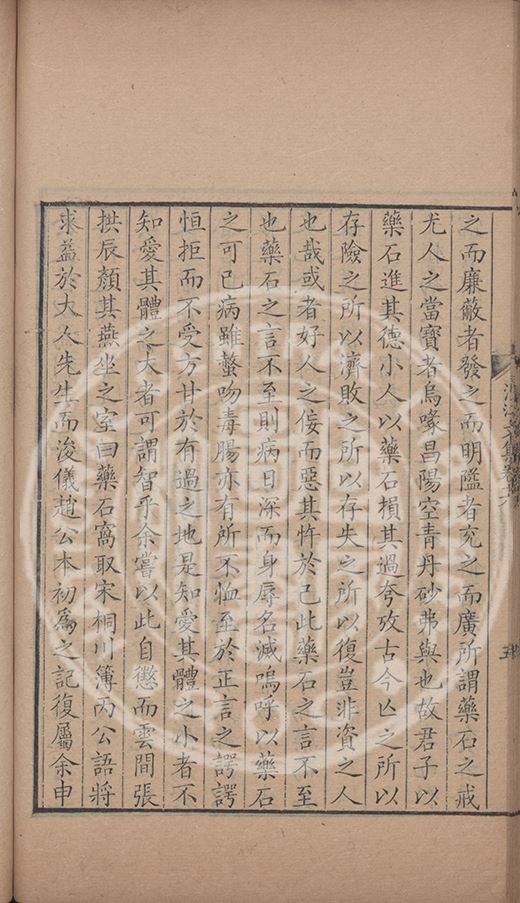 之而廉蔽者發之而明隘者充之而廣所謂藥石之戒
尤人之當寶者烏喙昌陽空青丹砂弗與也故君子以
藥石進其德小人以藥石損其過夸攷古今亡之所以
存險之所以濟敗之所以存失之所以復豈非資之人
也哉或者好人之佞而惡其忤於己此藥石之言不至
也藥石之言不至則病日深而身辱名滅嗚呼以藥石
之可已病雖螫吻毒腸亦有所不恤至於正言之諤諤
恒拒而不受方甘於有過之地是知愛其體之小者不
知愛其體之大者可謂智乎余嘗以此自懲而雲間張
拱辰顏其燕坐之室曰藥石窩取宋桐川簿丙公語將
求益於大人先生而浚儀趙公本初爲之記復屬余申